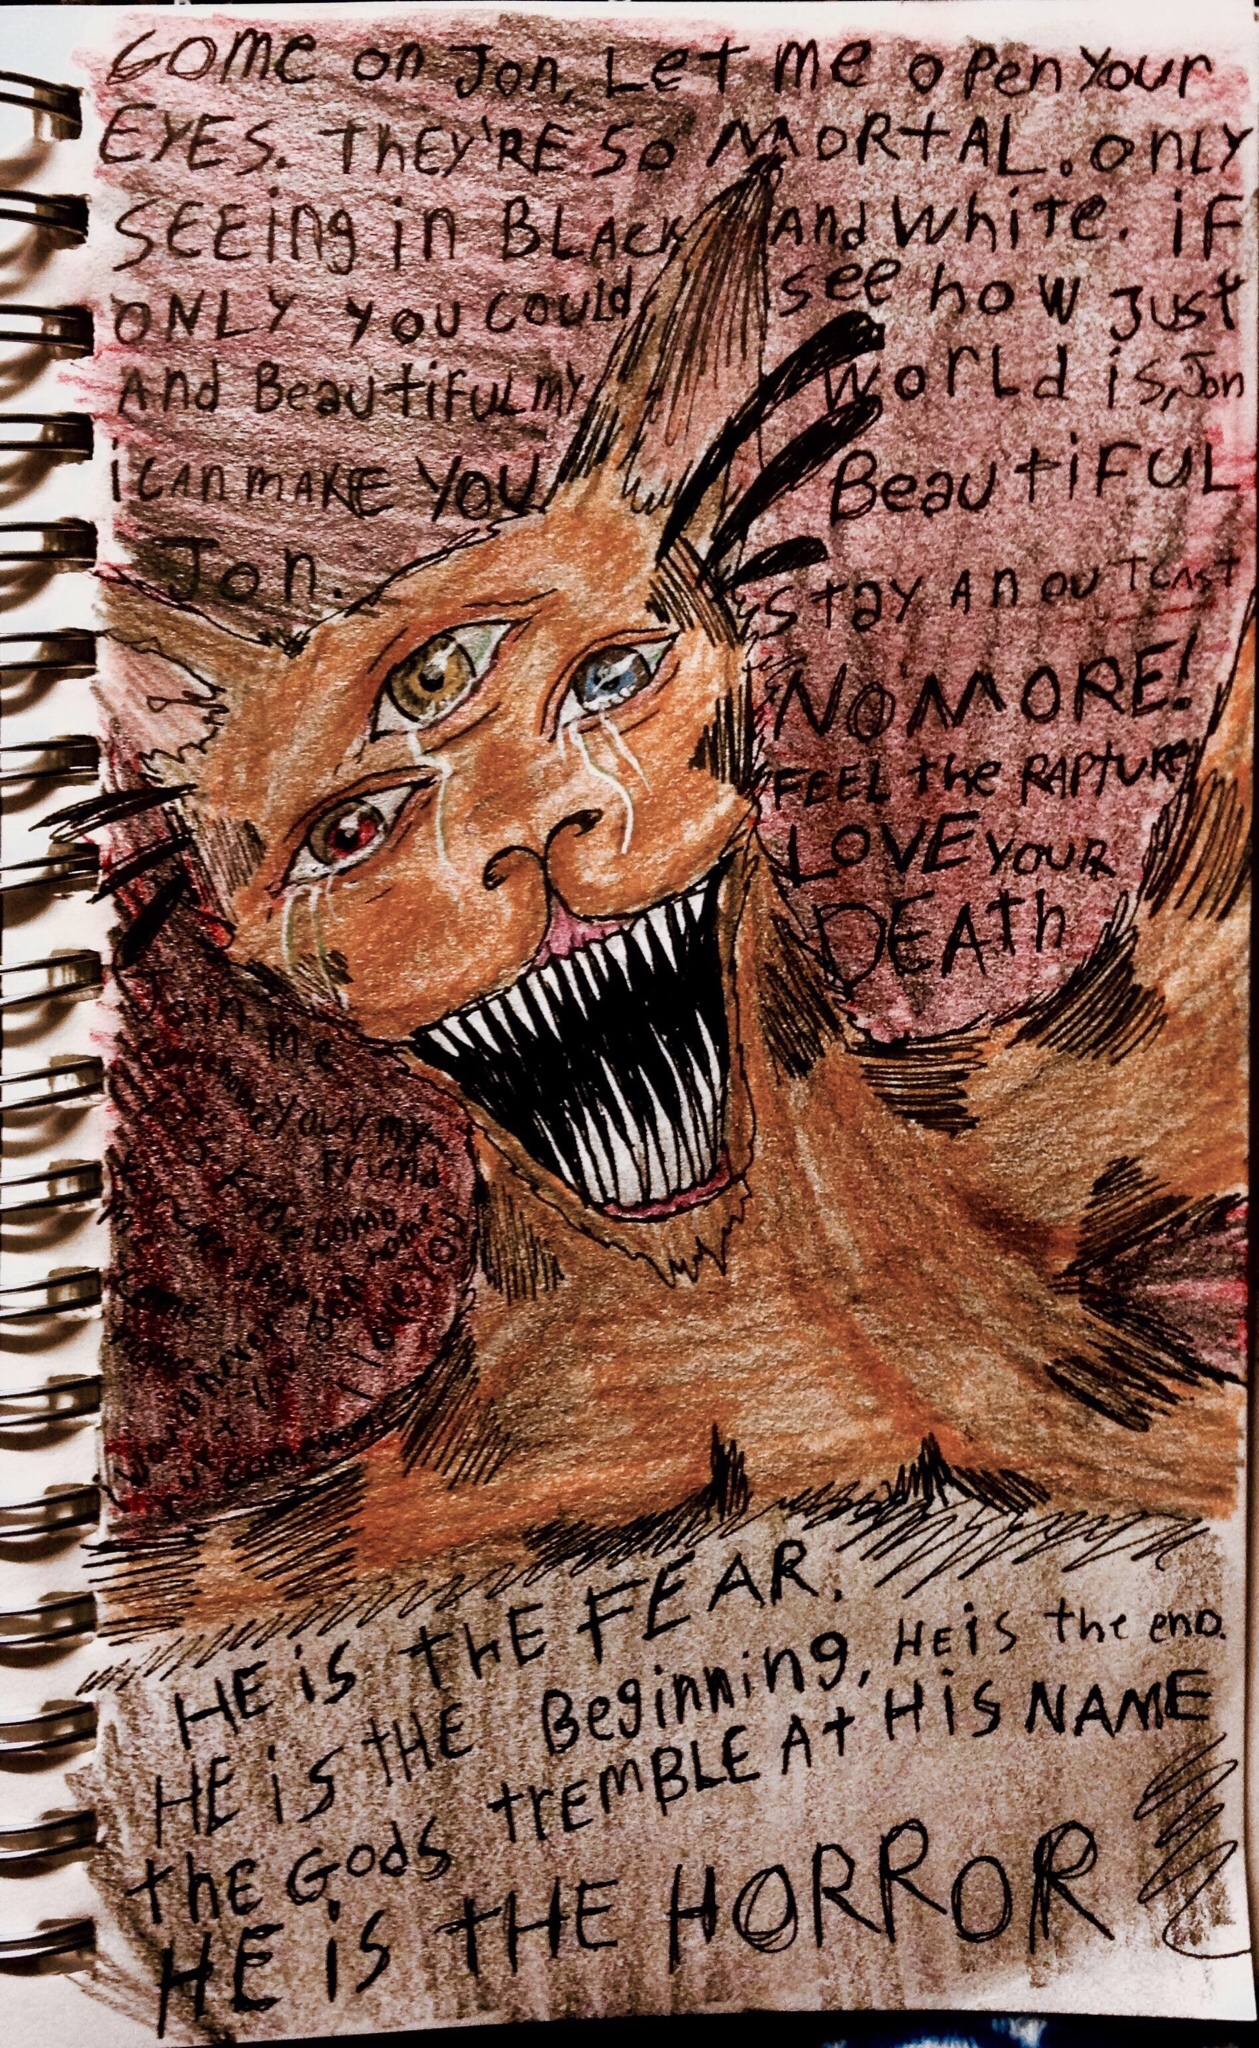 Come on Jon, Let me open Your
EYES. They'RE So MORTAL. only
SEEing in BLACK And White. iF
ONLY You COULD see how Just
And BeautiFUL my World is, Jon
i CAN MAKE YOU BeautiFUL
Jon.
Stay An outcast
NO MORE!
FEEL the RAPTURE
LOVE YOUR
DEAth
Join me
your my
Friend
come
home
I love YOU
HE is thE FEAR.
HE is tHE Beginning, HE is the end.
thE Gods trEMBLE At His NAME
HE is tHE HORROR